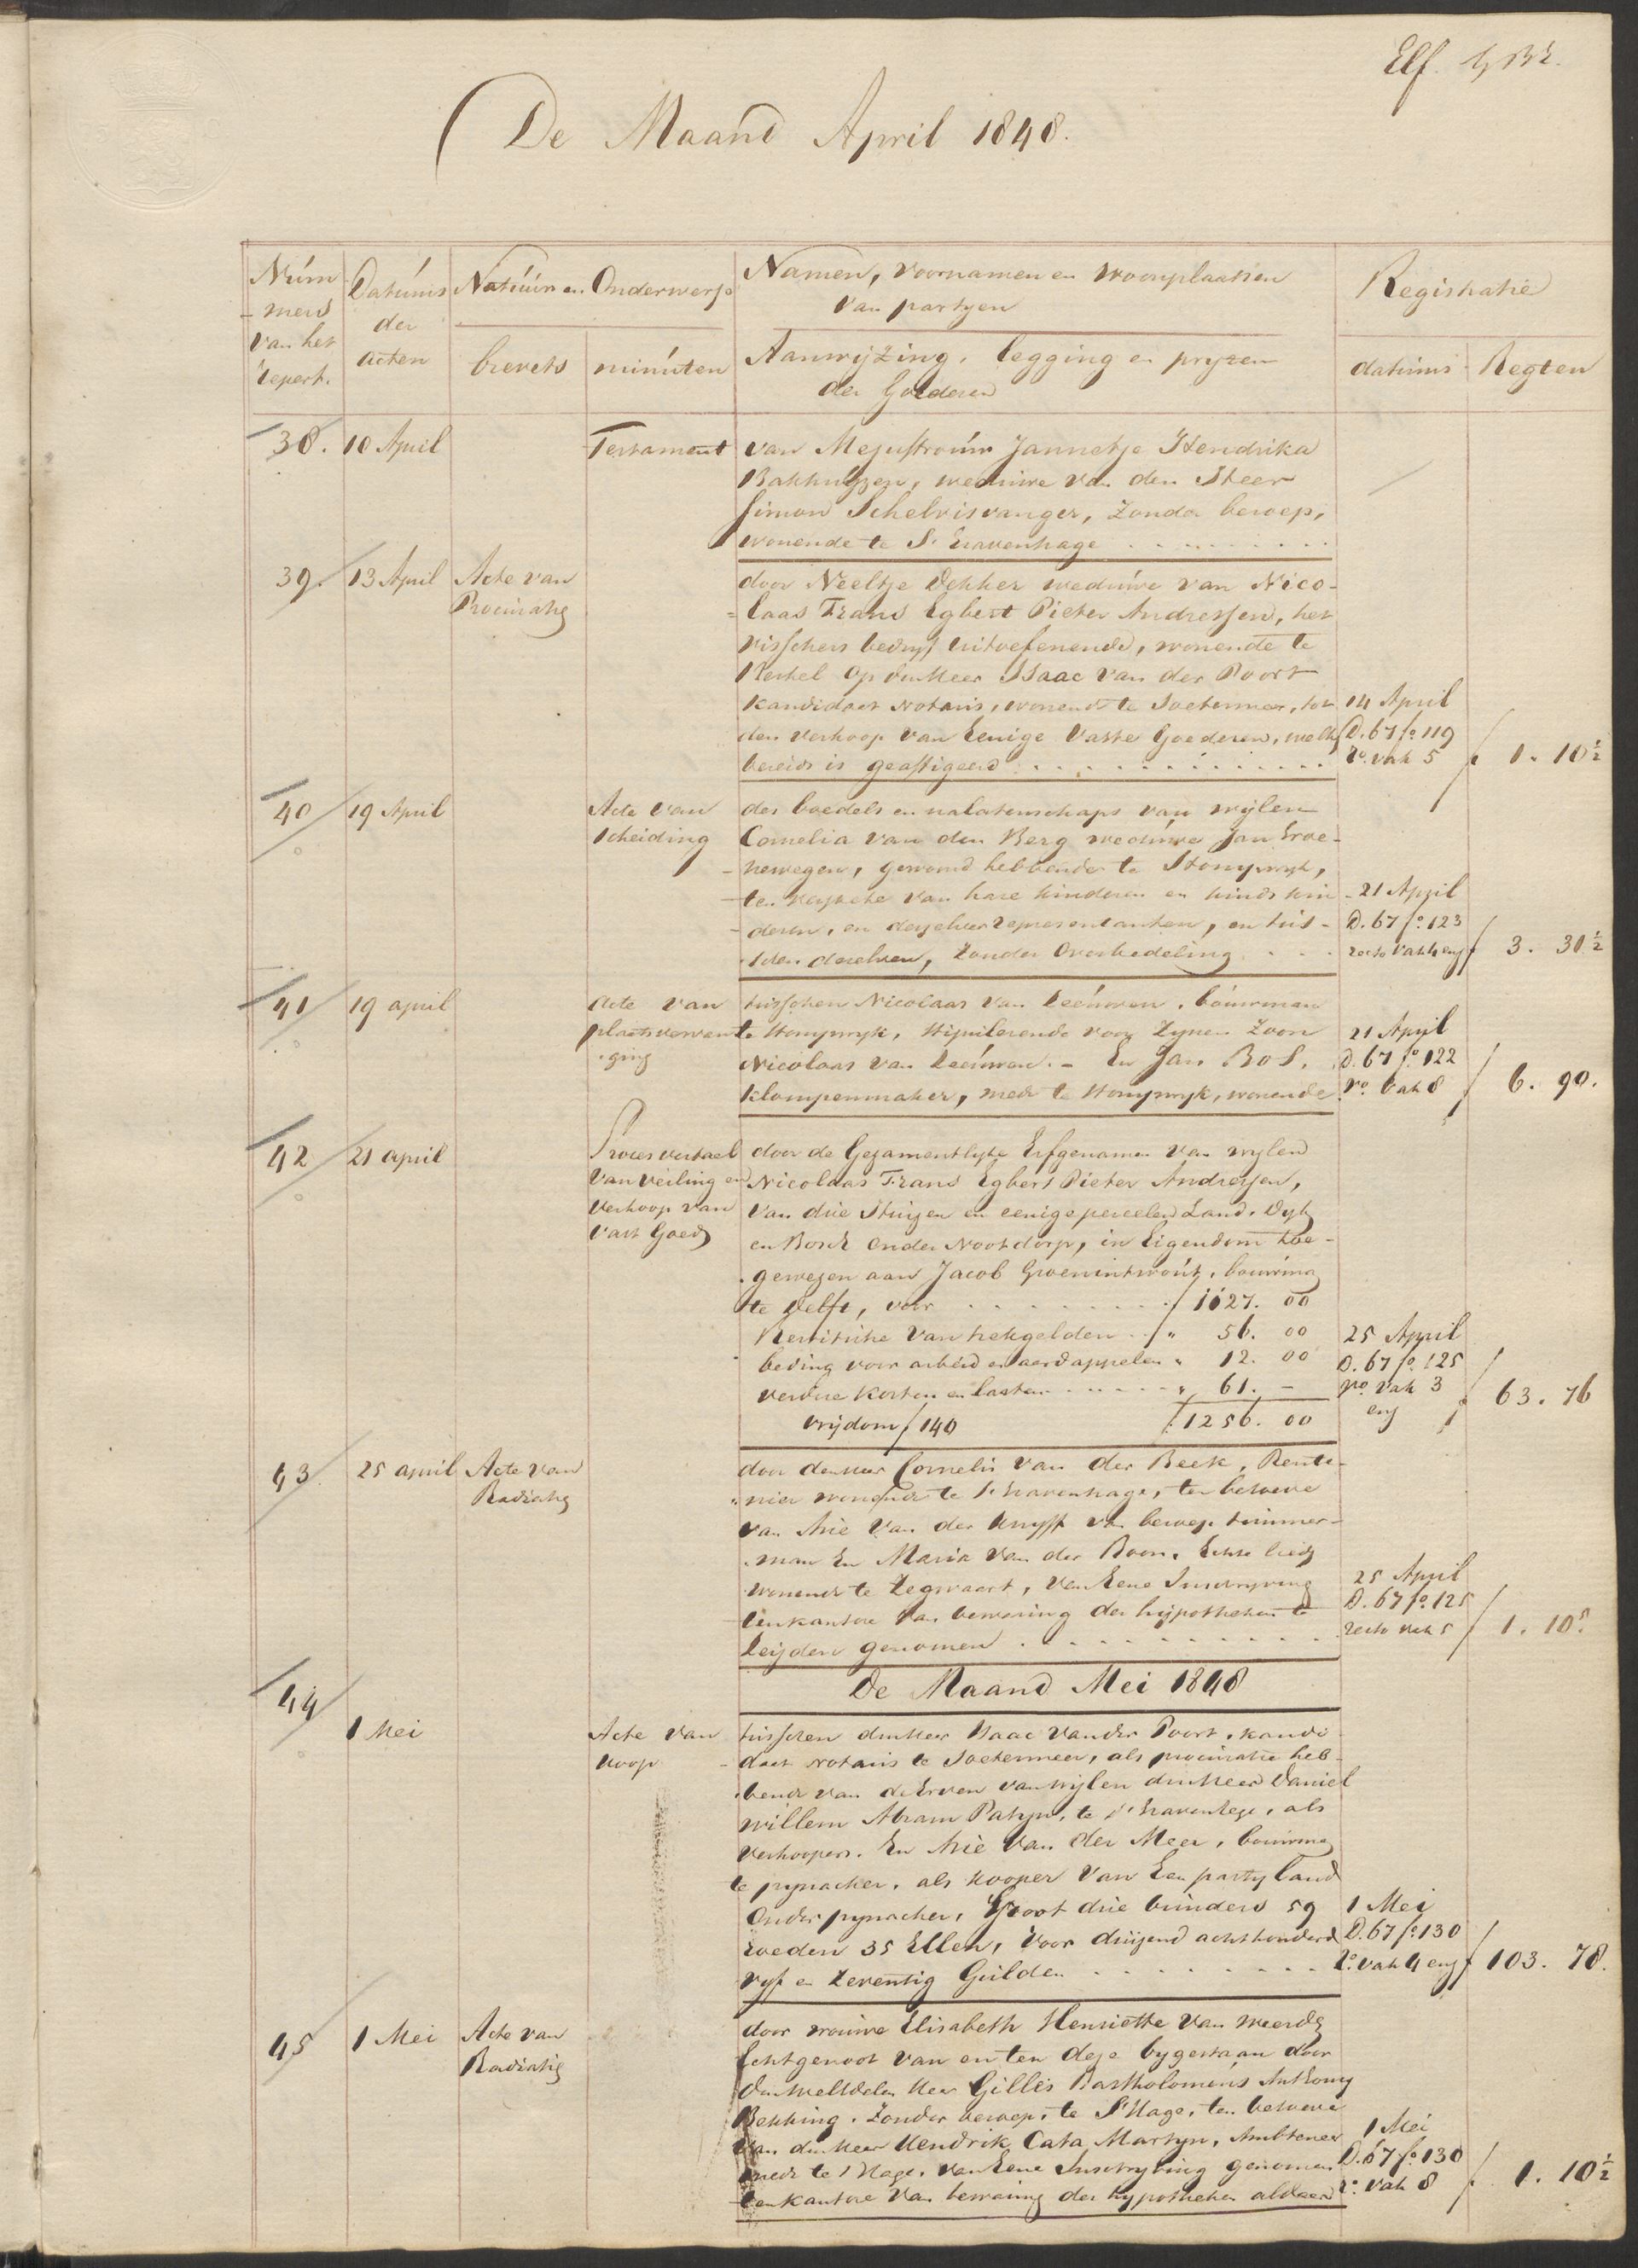 Elf.
De Maand April 1848.
Num
-mers
van het
repert.
Datums
der
acten
Natuur en Onderwerp
brevets
minuten
Namen, voornamen en woonplaatsen
van partyen
Aanwyzing, legging en pryzen
der Goederen
Registratie
datums
Regten
38. 10 April
Testament
van Mejuffrouw Jannetje Hendrika
Bakhuyzen, weduwe van den Heer
Simon Schelvisvanger, Zonder beroep,
wonende te S' Gravenhage
39. 13 April
Acte van
Procuratie
door Neeltje Dekker weduwe van Nico-
=laas Frans Egbert Pieter Andressen, het
visschers bedryf uitoefenende, wonende te
Kethel op den Heer Isaac van der Poort
kandidaat Notaris, wonende te Soetermeer, tot
den verkoop van Eenige Vaste Goederen, welke
bereids is geaffigeerd
14 April
D. 67 fo. 119
ro. vak 5
1. 10½
40 19 April
Acte van
Scheiding
des boedels en nalatenschaps van wylen
Cornelia van den Berg weduwe Jan Groe-
-newegen, gewoond hebbende te Stompwyk,
-ten behoeve van hare kinderen en kinds kin
-deren, en derzelver representanten, en tus-
-schen dezelven, Zonder Overbedeling
21 April
D. 67 fo. 123
recto vak 4 enz
3. 31½
41 19 april
Acte van
plaatsvervan
-ging
tusschen Nicolaas van Leeuwen, bouwman
te Stompwyk, Stipulerende voor Zynen Zoon
Nicolaas van Leeuwen. - En Jan Bos,
klompenmaker, mede te Stompwyk, wonende
21 April
D. 67 fo. 122
vo. vak 8
6. 90.
42 21 april
Proces verbaal
van veiling en
verkoop van
vast Goed
door de Gezamentlyke Erfgenamen van wylen
Nicolaas Frans Egbert Pieter Andressen,
van drie Huizen en eenige perceelen Land, Dyk
en Bosch Onder Nootdorp, in Eigendom toe-
-gewezen aan Jacob Groenintwout, bouwman
te Delft, voor f 1127. 00
Restitutie van hekgelden " 56. 00
beding voor arbeid en aardappelen " 12. 00
verdere kosten en lasten " 61. -
vrijdom f 140 f 1256. 00
25 April
D. 67 fo. 125
vo. vak 3
enz
63. 76
43. 25 april
Acte van
Radiatie
door den Heer Cornelis van der Beek, Rente-
-nier wonende te S' Gravenhage, ten behoeve
van Arie van der Knyff van beroep timmer-
-man En Maria van der Boon, Echte lieden
wonende te Zegwaart, van Eene Inschryving
ten kantore van bewaring der hypotheken te
Leijden genomen
25 April
D. 67 fo. 125
recto vak 5
1. 10⁵
De Maand Mei 1848
44
1 Mei
Acte van
koop
tusschen den Heer Isaac van der Poort, kandi
daat Notaris te Soetermeer, als procuratie heb-
-bende van de Erven van wylen den Heer Daniel
Willem Abram Patyn, te S' Gravenhage, als
verkoopers. En Arie van der Meer, bouwman
te pynacker, als kooper van Een party land
Onder pynacker, Groot drie bunders 59
roeden 35 Ellen, voor duizend achthonderd
vyf en Zeventig Gulden
1 Mei
D. 67 fo. 130
ro. vak 4 enz
103. 78.
45 1 Mei
Acte van
Radiatie
door vrouwe Elisabeth Henriette van Weerde
Echtgenoot van en ten deze bygestaan door
den WelEdelen Heer Gilles Bartholomeus Anthony
Bekking, Zonder beroep, te S'Hage, ten behoeve
van den Heer Hendrik Cata Martyn, Ambtenaar
mede te S'Hage, van Eene Inschryving genomen
ten kantore van bewaring der hypotheken aldaar
1 Mei
D. 67 fo. 130
ro. vak 8
1. 10½